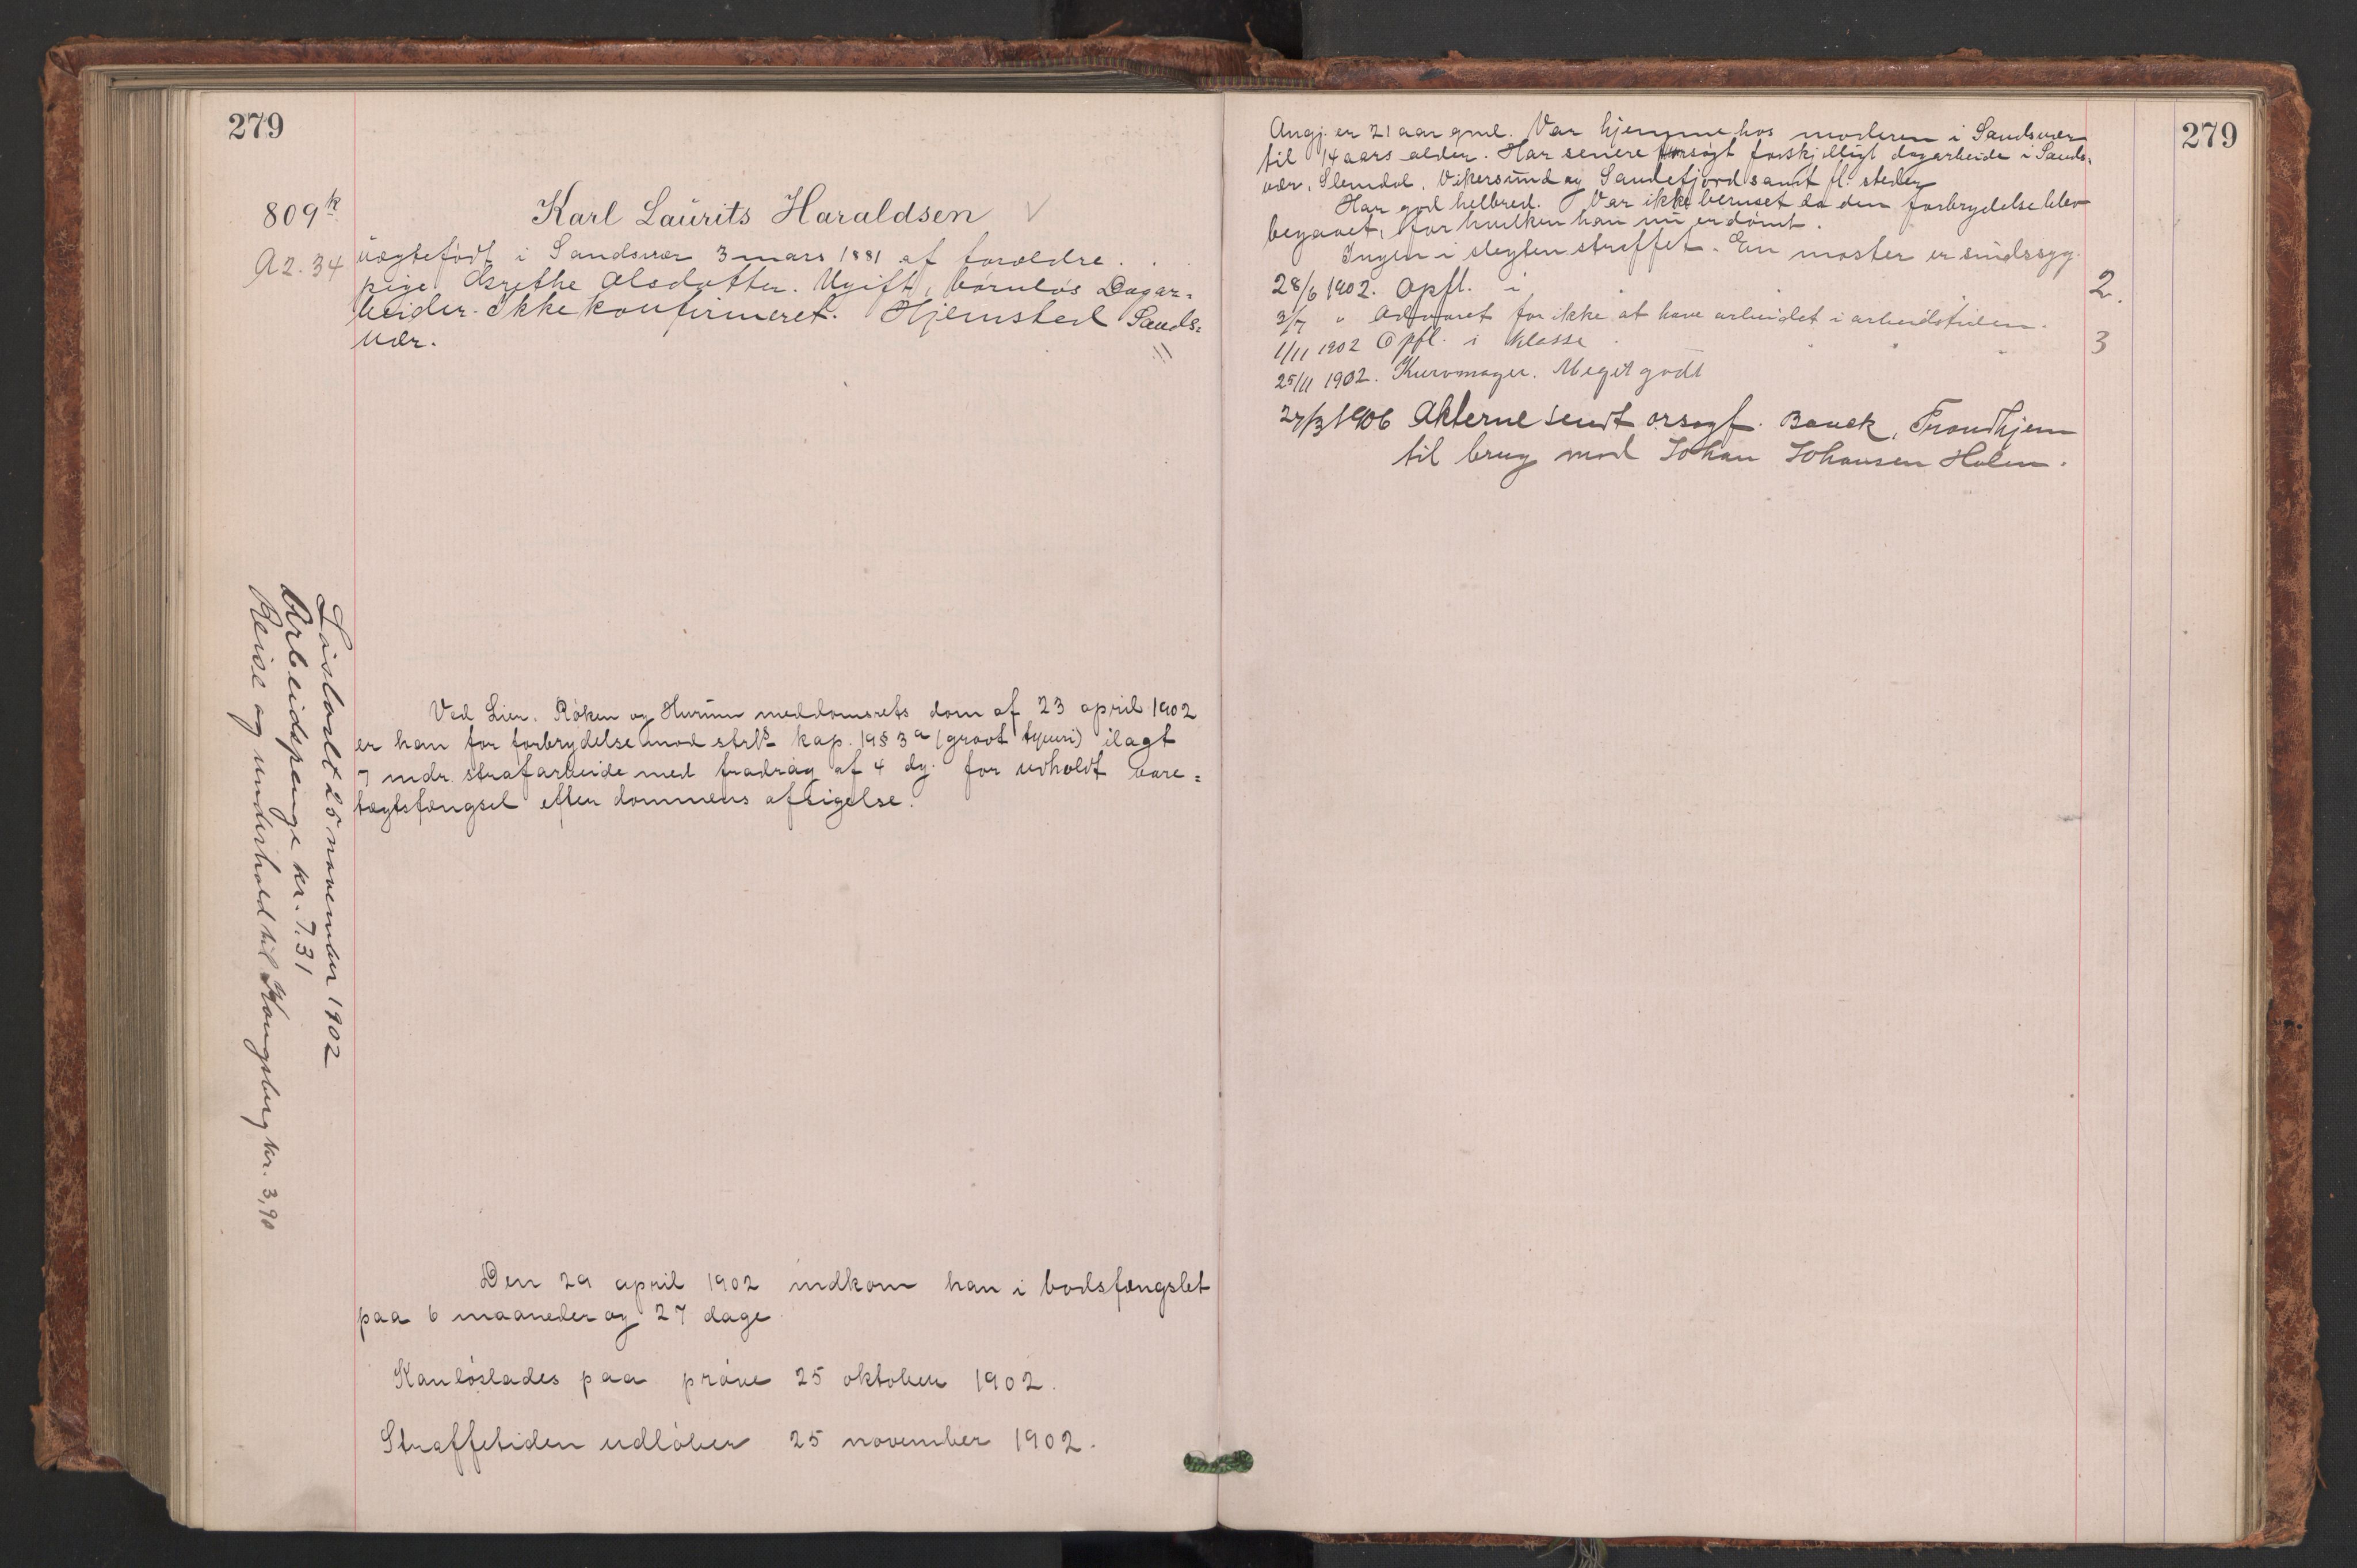 279
809 k
A2. 34
Karl Laurits Haraldsen
uægtefødt i Sandsvær 3 mars 1881 af forældre.
pige Grethe Olsdatter. Ugift, barnløs Dagar-
beider. Ikke konfirmeret. Hjemsted Sands-
vær.
Ved Lier, Røken og Hurum meddomsrets dom af 23 april 1902
er han for forbrydelse mod strfl kap. 19 § 3 a (grovt tyveri) ilagt
7 mdr. strafarbeide med fradrag af 4 dg. for udholdt vare-
tægtsfængsel efter dommens afsigelse.
Den 29 april 1902 indkom han i bodsfængslet
paa 6 maaneder og 27 dage
Kan løslades paa prøve 25 oktober 1902.
Straffetiden udløber 25 november 1902.
Løsladt 25 november 1902
Arbeidspenge kr. 7.31
Reise og underhold til Kongsberg kr. 3,90
279
Angj. er 21 aar gml. Var hjemme hos moderen i Sandsvær
til 14 aars alder. Har senere forsøgt forskjelligt dagarbeide i Sands-
vær, Slemdal, Vikersund og Sandefjord samt fl. steder
Har god helbred. Var ikke beruset da den forbrydelse blev
begaaet, for hvilken han nu er dømt.
Ingen i slegten straffet. En moster er sindssyg.
28/6 1902. Opfl. i 2.
3/7 " Advaret for ikke at have arbeidet i arbeidstiden.
1/11 1902 Opfl. i Klasse 3
25/11 1902. Kurvmager. Meget godt
27/3 1906 Akterne sendt orsagf. Bauck, Trondhjem
til brug mod Johan Johansen Holm.